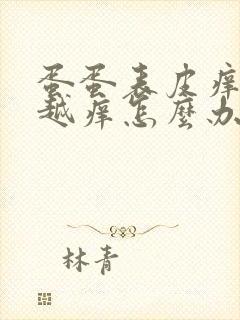 蛋蛋表皮痒
越痒怎麼办
林青